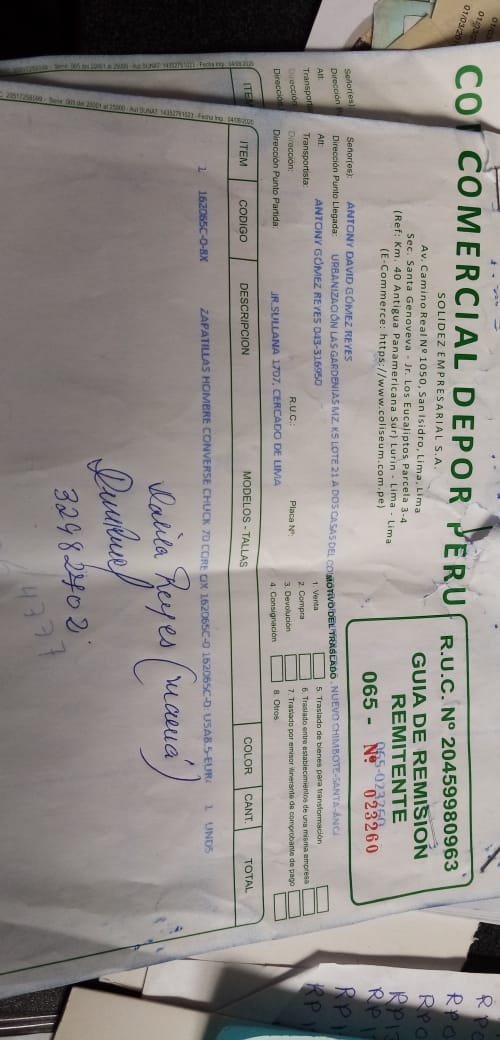 COMERCIAL DEPOR PERU
SOLIDEZ EMPRESARIAL S.A.
Av. Camino Real Nº 1050, San Isidro, Lima, Lima
Sec. Santa Genoveva - Jr. Los Eucaliptos Parcela 3-4
(Ref: Km. 40 Antigua Panamericana Sur) Lurin - Lima - Lima
(E-Commerce: https://www.coliseum.com.pe)
R.U.C. Nº 20459980963
GUIA DE REMISION
REMITENTE
065-023260
065 - Nº 023260
Señor(es): ANTONY DAVID GÓMEZ REYES
Dirección Punto Llegada: URBANIZACIÓN LAS GARDENIAS MZ. K5 LOTE 21 A DOS CASAS DEL NUEVO CHIMBOTE-SANTA-ANC
Att: ANTONY GÓMEZ REYES 043-316950
MOTIVO DEL TRASLADO
Transportista:
Dirección: R.U.C.: Placa Nº:
Dirección Punto Partida: JR.SULLANA 1707, CERCADO DE LIMA
1. Venta
2. Compra
3. Devolución
4. Consignación
5. Traslado de bienes para transformación
6. Traslado entre establecimientos de una misma empresa
7. Traslado por emisor itinerante de comprobante de pago
8. Otros
ITEM CODIGO DESCRIPCION MODELOS - TALLAS COLOR CANT. TOTAL
1 162065C-0-8X ZAPATILLAS HOMBRE CONVERSE CHUCK 70 CORE OX 162065C-0 162065C-0: USA8.5-EUR: 1 UNDS
Dalila Reyes (mamá)
32982702
4777
CO
Señor(es):
Dirección P
Att:
Transport
Dirección
Dirección
ITEM